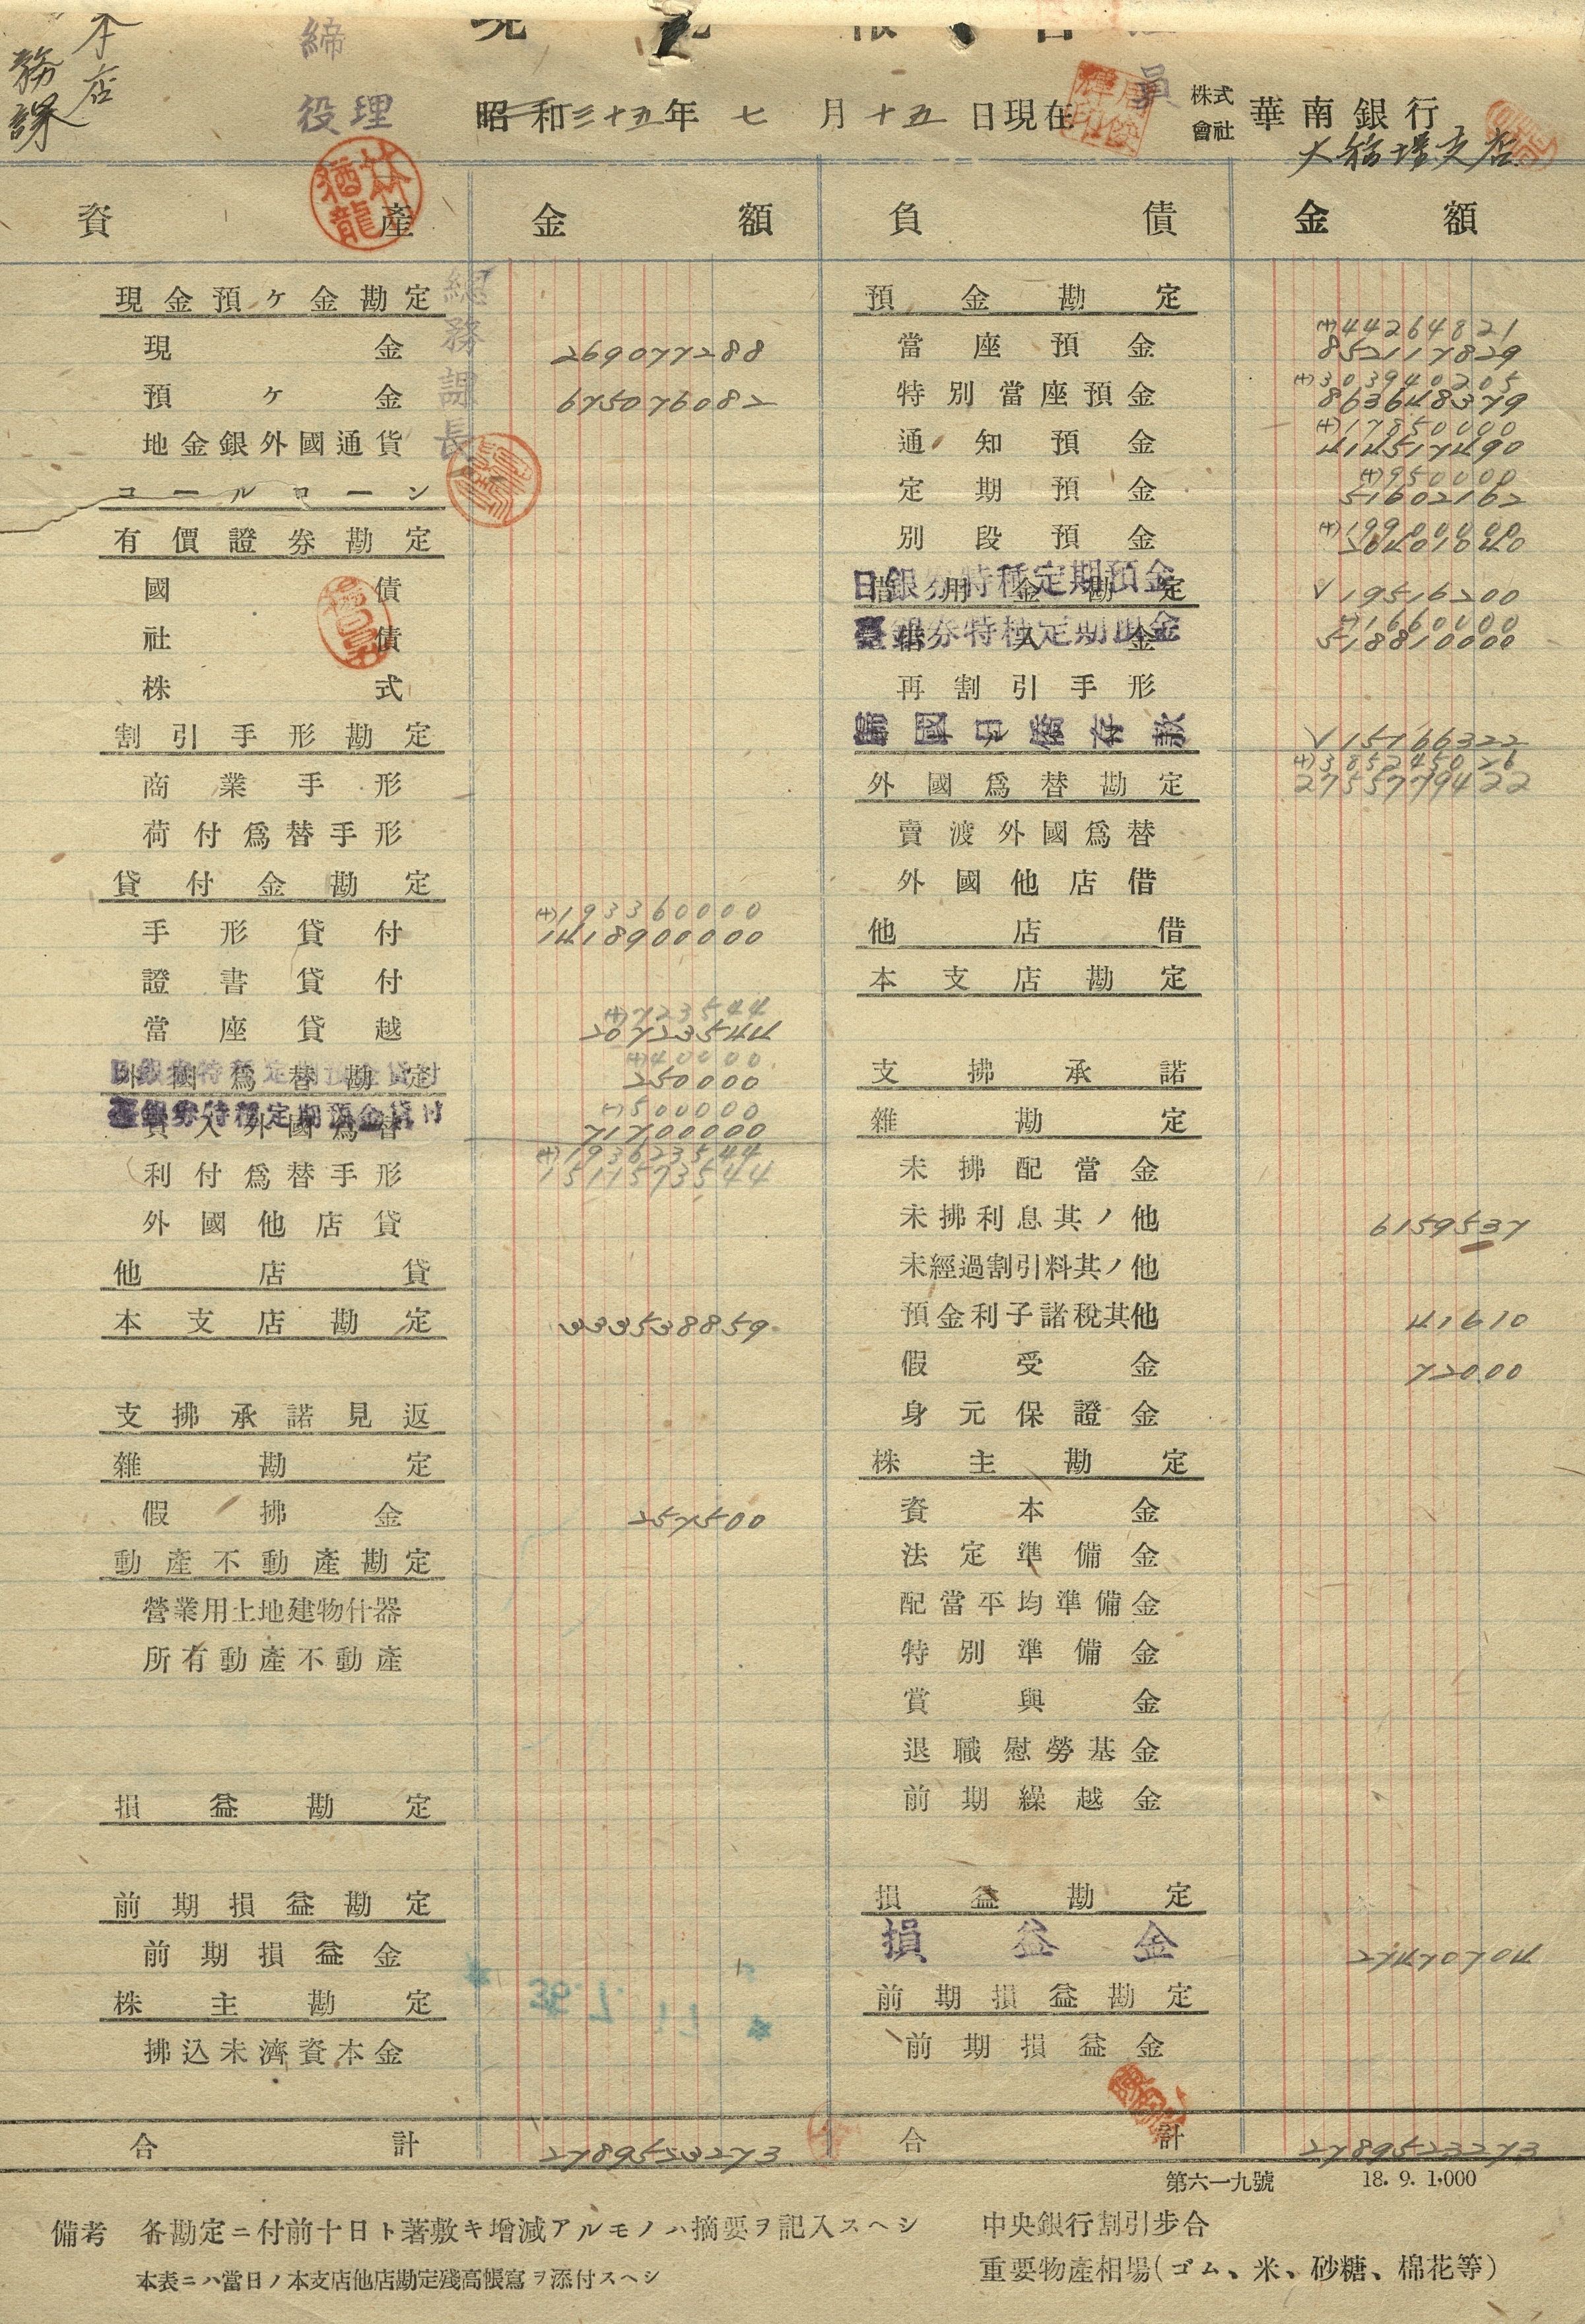 本店
務課
締
役理
昭和三十五年 七 月 十五 日現在
株式會社 華南銀行
大稻埕支店
資產 金額 負債 金額
總務課長
現金預ケ金勘定
現金 269077288
預ケ金 675076082
地金銀外國通貨
コールローン
有價證券勘定
國債
社債
株式
割引手形勘定
商業手形
荷付爲替手形
貸付金勘定
(+)193360000
手形貸付 1418900000
證書貸付
(+)723544
當座貸越 20723544
日銀券特種定期預金貸付
外國爲替勘定
(+)40000
250000
臺銀券特種定期預金貸付
買入外國爲替
(-)500000
71700000
(+)193623544
利付爲替手形 1511573544
外國他店貸
他店貸
本支店勘定 333538859
支拂承諾見返
雜勘定
假拂金 257500
動產不動產勘定
營業用土地建物什器
所有動產不動產
損益勘定
前期損益勘定
前期損益金
株主勘定
拂込未濟資本金
合計 2789523273
預金勘定
(+)44264821
當座預金 852117829
(+)303940205
特別當座預金 863648379
(+)17850000
通知預金 414517490
(+)950000
定期預金 51602162
(+)19900000
別段預金 20401040
日銀券特種定期預金
借用金勘定
19516200
臺銀券特種定期預金
借入金
(-)1660000
518810000
再割引手形
歸國日僑存款 15166322
(+)385245026
外國爲替勘定 2755779422
賣渡外國爲替
外國他店借
他店借
本支店勘定
支拂承諾
雜勘定
未拂配當金
未拂利息其ノ他 6159537
未經過割引料其ノ他
預金利子諸稅其他 41610
假受金 72000
身元保證金
株主勘定
資本金
法定準備金
配當平均準備金
特別準備金
賞與金
退職慰勞基金
前期繰越金
損益勘定
損益金 27470704
前期損益勘定
前期損益金
合計 2789523273
第六一九號 18.9.1.000
備考 各勘定ニ付前十日ト著敷キ增減アルモノハ摘要ヲ記入スヘシ
本表ニハ當日ノ本支店他店勘定殘高帳寫ヲ添付スヘシ
中央銀行割引步合
重要物產相場(ゴム、米、砂糖、棉花等)